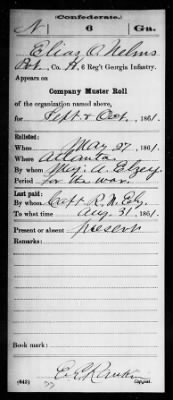 (Confederate.)
N 6 Ga.
Elias A. Nelms
Pvt., Co. K, 6 Reg't Georgia Infantry.
Appears on
Company Muster Roll
of the organization named above,
for Sept & Oct, 1861.
Enlisted:
When May 27, 1861.
Where Atlanta
By whom Maj. A. Elzey
Period for the war.
Last paid:
By whom Capt R. N.
To what time Aug 31, 1861.
Present or absent present
Remarks:
Book mark:
(642)
Copyist.